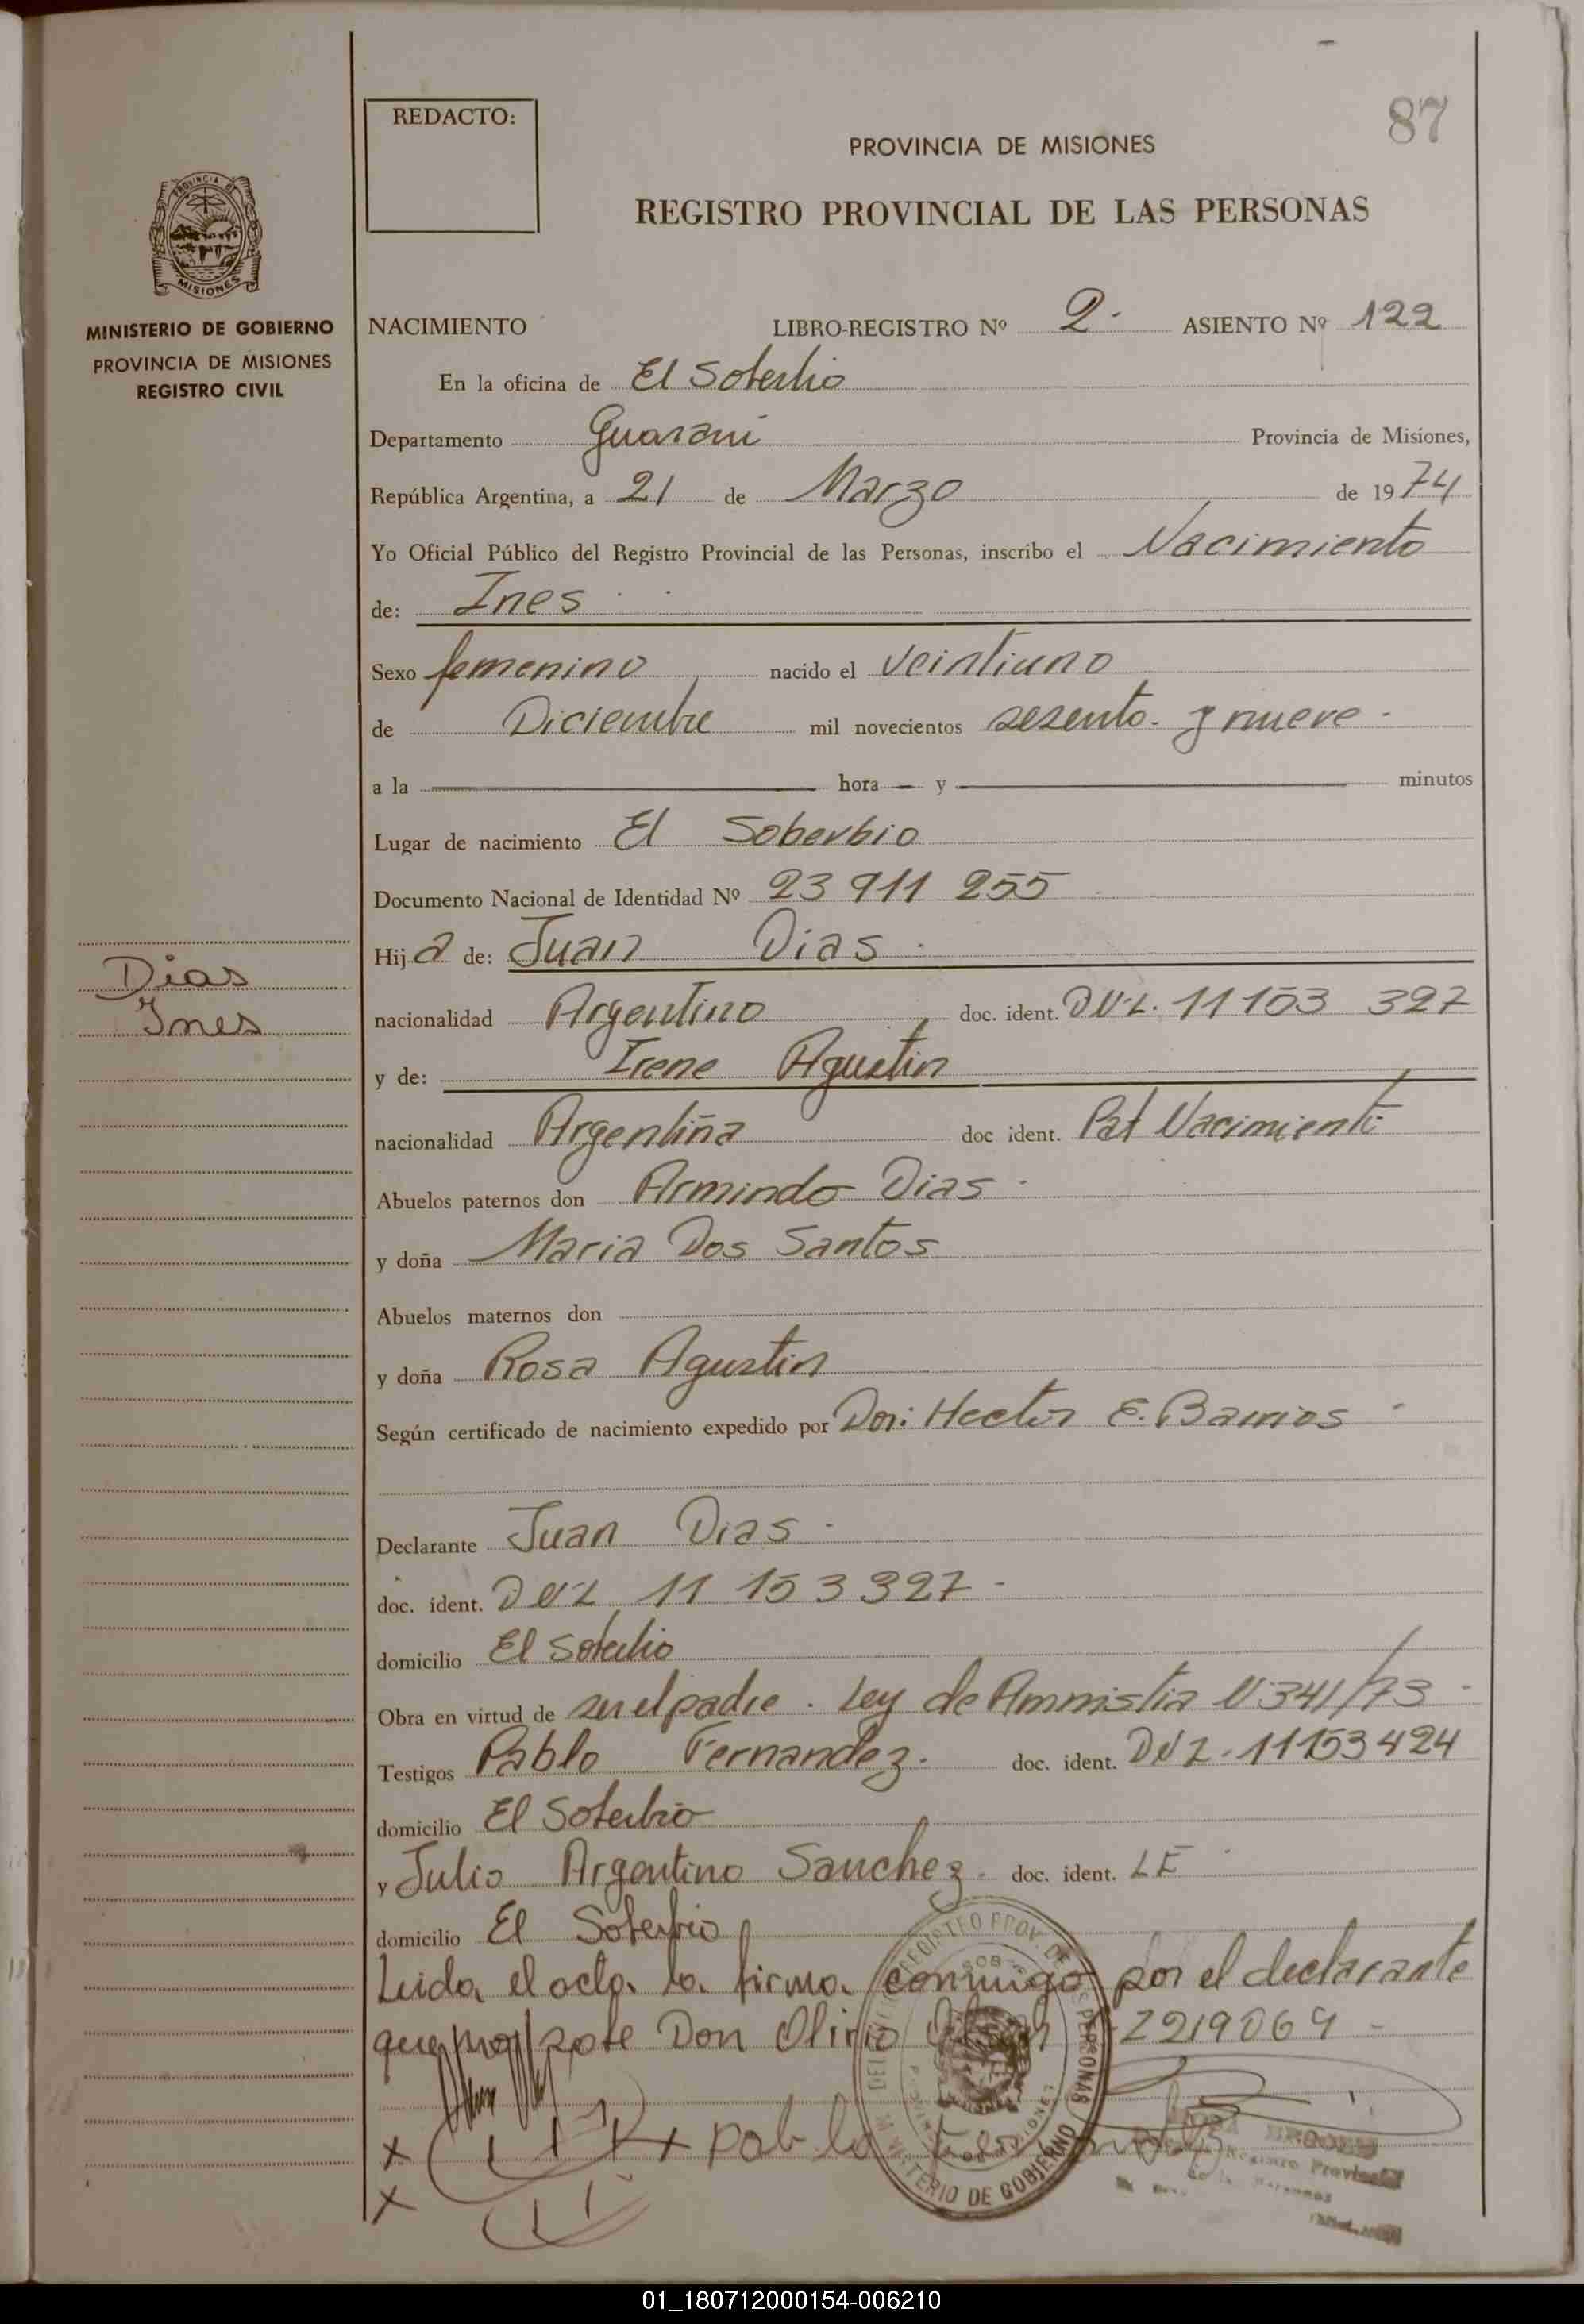 87
REDACTO:
PROVINCIA DE MISIONES
REGISTRO PROVINCIAL DE LAS PERSONAS
PROVINCIA DE
MISIONES
MINISTERIO DE GOBIERNO
PROVINCIA DE MISIONES
REGISTRO CIVIL
NACIMIENTO LIBRO-REGISTRO Nº 2. ASIENTO Nº 122
En la oficina de El Soberbio
Departamento Guarani Provincia de Misiones,
República Argentina, a 21 de Marzo de 1974
Yo Oficial Público del Registro Provincial de las Personas, inscribo el Nacimiento
de: Ines
Sexo femenino nacido el veintiuno
de Diciembre mil novecientos sesenta y nueve -
a la hora y minutos
Lugar de nacimiento El Soberbio
Documento Nacional de Identidad Nº 23 911 255
Hija de: Juan Dias
Dias
Ines
nacionalidad Argentino doc. ident. DNI. 11 153 327
y de: Irene Agustin
nacionalidad Argentina doc ident. Nacimiento
Abuelos paternos don Armindo Dias
y doña Maria Dos Santos
Abuelos maternos don
y doña Rosa Agustin
Según certificado de nacimiento expedido por Hector E. Barrios
Declarante Juan Dias
doc. ident. DNI 11 153 327
domicilio El Soberbio
Obra en virtud de ser el padre. Ley de Amnistia N 341/73
Testigos Pablo Fernandez. doc. ident. DNI. 11153424
domicilio El Soberbio
y Julio Argentino Sanchez. doc. ident. LE
domicilio El Soberbio
Leida el acta la firma conmigo por el declarante
que no sabe Don Olirio 7219064
x pablo
x
MINISTERIO DE GOBIERNO
01_180712000154-006210